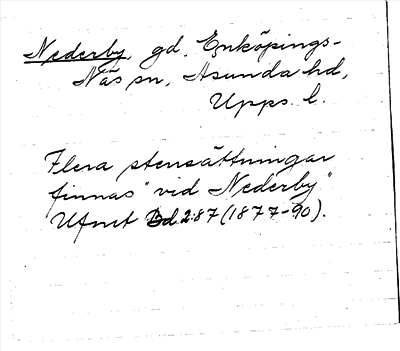 Nederby, gd. Enköpings-
Näs sn, Asunda hd,
Upps. l.
Flera stensättningar
finnas "vid Nederby"
Ufmt Bd 2:87 (1877-90).